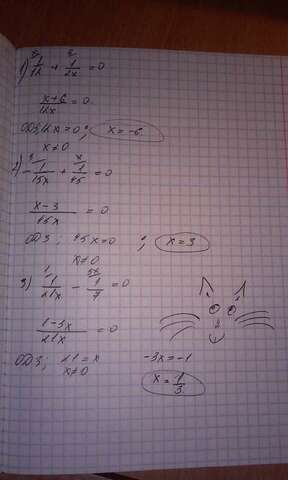 1) 1/12 + 1/2x = 0
x+6/12x = 0
ОДЗ; 12x = 0; x = -6
x ≠ 0
2) -1/15x + 1/45 = 0
x-3/45x = 0
ОДЗ; 45x = 0; x = 3
x ≠ 0
3) 1/21x - 1/7 = 0
1-3x/21x = 0
ОДЗ; 21 = x
x ≠ 0
-3x = -1
x = 1/3